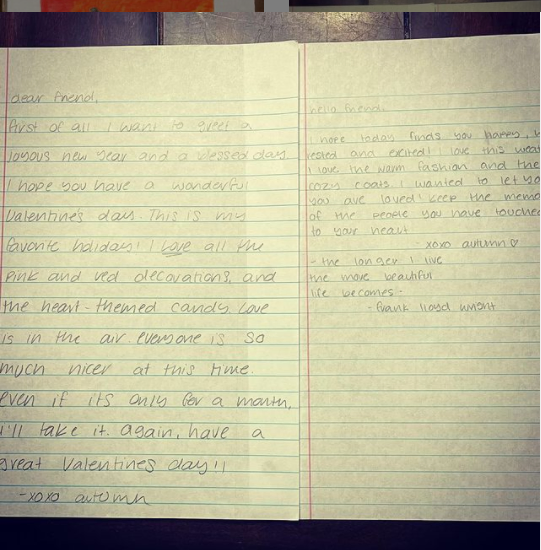 Dear friend,
first of all I want to greet a
joyous new year and a blessed day.
I hope you have a wonderful
Valentines day. This is my
favorite holiday! I love all the
pink and red decorations, and
the heart-themed candy. Love
is in the air everyone is so
much nicer at this time.
even if its only for a month,
i'll take it. again, have a
great Valentines day!!
-xoxo autumn
hello friend,
I hope today finds you happy,
rested and excited! I love this
I love the warm fashion and the
cozy coats. I wanted to let
you are loved! Keep the
of the people you have touched
to your heart
xoxo autumn♡
- the longer I live
the more beautiful
life becomes -
- frank lloyd wright